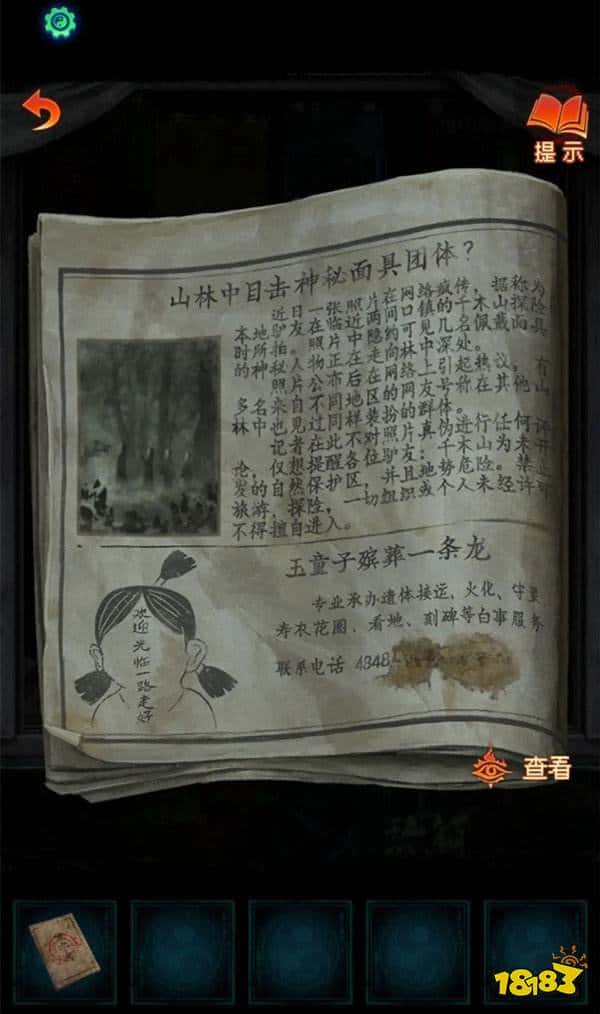 提示
山林中目击神秘面具团体？
近日一张照片在网络疯传，据称为
本地驴友在临近两间口镇的千木山探险
时所拍。照片中隐约可见几名佩戴面具
的神秘人物正走向林中深处。
照片公布后在网络上引起热议，有
多名来自不同地区的网友号称在其他山
林中也见过同样装扮的群体。
记者在此不对照片真伪进行任何评
论，仅想提醒各位驴友：千木山为未开
发的自然保护区，并且地势危险。禁止
旅游、探险，一切组织或个人未经许可
不得擅自进入。
欢迎光临一路走好
玉童子殡葬一条龙
专业承办遗体接运、火化、守灵
寿衣花圈、看地、刻碑等白事服务
联系电话 4348
查看
18183